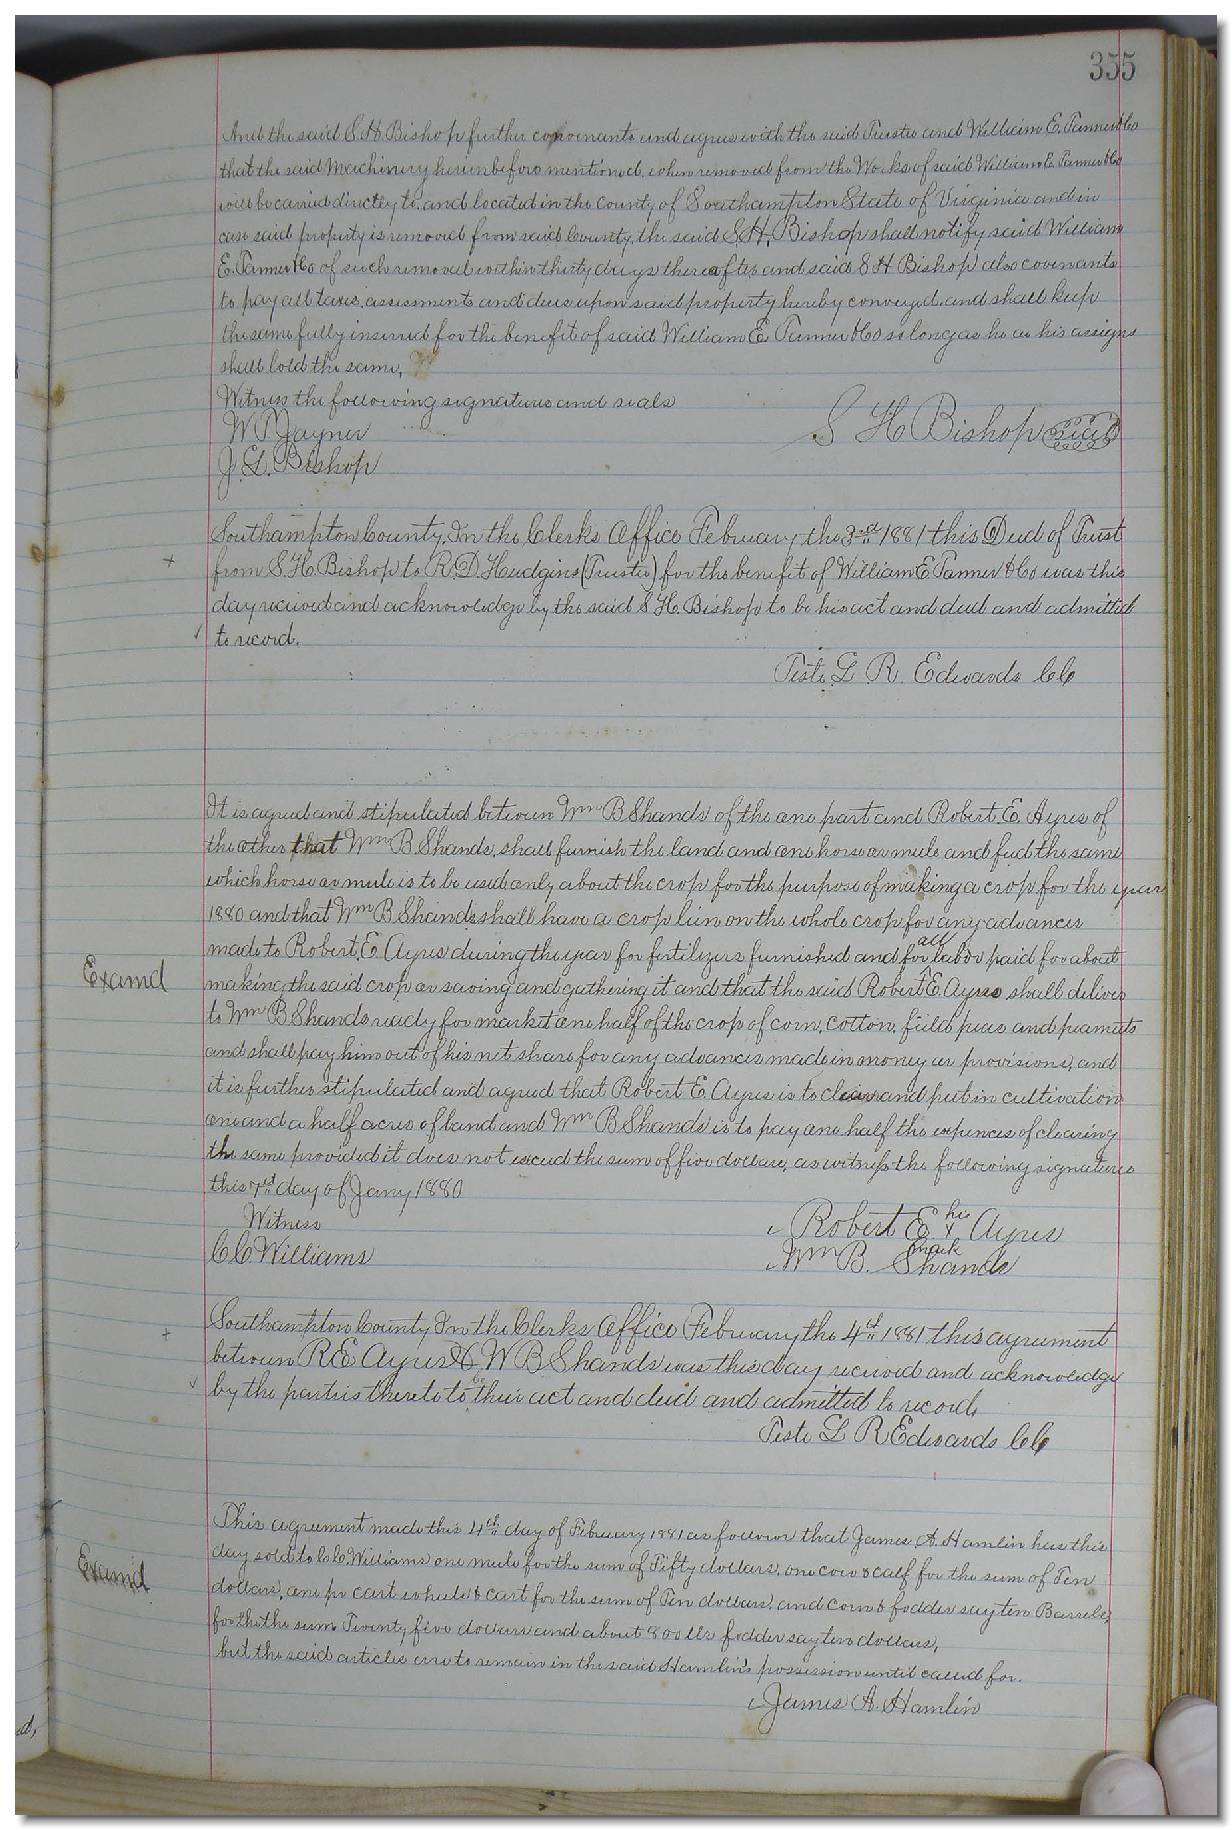 355
And the said S H Bishop further convenants and agrees with the said Trustee and William E. Tanner & Co
that the said Machinery hereinbefore mentioned, when removed from the Works of said William E. Tanner & Co
will be carried directly to, and located in the County of Southampton State of Virginia and in
case said property is removed from said County, the said S.H. Bishop shall notify said William
E. Tanner & Co of such removal within thirty days thereafter and said S H Bishop also covenants
to pay all taxes, assessments and dues upon said property hereby conveyed and shall keep
the same fully insured for the benefit of said William E. Tanner & Co so long as he or his assigns
shall hold the same,
Witness the following signatures and seals
W P Joyner
S H Bishop seal
J. L. Bishop
Southampton County, In the Clerks Office February the 3rd 1881 this Deed of Trust
+ from S. H. Bishop to R. D. Hudgins (Trustee) for the benefit of William E Tanner & Co was this
day received and acknowledge by the said S H. Bishop to be his act and deed and admitted
to record.
Teste L R. Edwards CC
It is agreed and stipulated between Wm B Shands of the one part and Robert. E. Ayres of
the other that Wm B Shands, shall furnish the land and one horse or mule and feed the same
which horse or mule is to be used only about the crop for the purpose of making a crop for the year
1880 and that Wm B Shands shall have a crop lien on the whole crop for any advances
made to Robert. E Ayres during the year for fertilizers furnished and for all labor paid for about
Examd
making the said crop or saving and gathering it and that the said Robert E. Ayres shall deliver
to Wm B Shands ready for market one half of the crop of corn, cotton, field peas and peanuts
and shall pay him out of his net share for any advances made in money or provisions, and
it is further stipulated and agreed that Robert E Ayres is to clear and put in cultivation
one and a half acres of land and Wm B Shands is to pay one half the expences of clearing
the same provided it does not exceed the sum of five dollars, as witness the following signatures
this 7th day of Jany 1880
Witness
Robert E his x mark Ayres
C C Williams
Wm B. Shands
Southampton County In the Clerks Office February the 4th 1881 this agreement
+ between R E Ayres & W B Shands was this day received and acknowledge
by the parties thereto to be their act and deed and admitted to record,
Teste L R Edwards CC
This agreement made this 4th day of February 1881 as follows that James A. Hamlin has this
day sold to C. C. Williams one mule for the sum of Fifty dollars, one cow & calf for the sum of Ten
Examd
dollars, one pr cart wheels & cart for the sum of Ten dollars, and corn & fodder say ten Barrels,
for the the sum Twenty five dollars and about 800 lbs fodder say ten dollars,
but the said articles are to remain in the said Hamlin's possession until called for.
James A. Hamlin